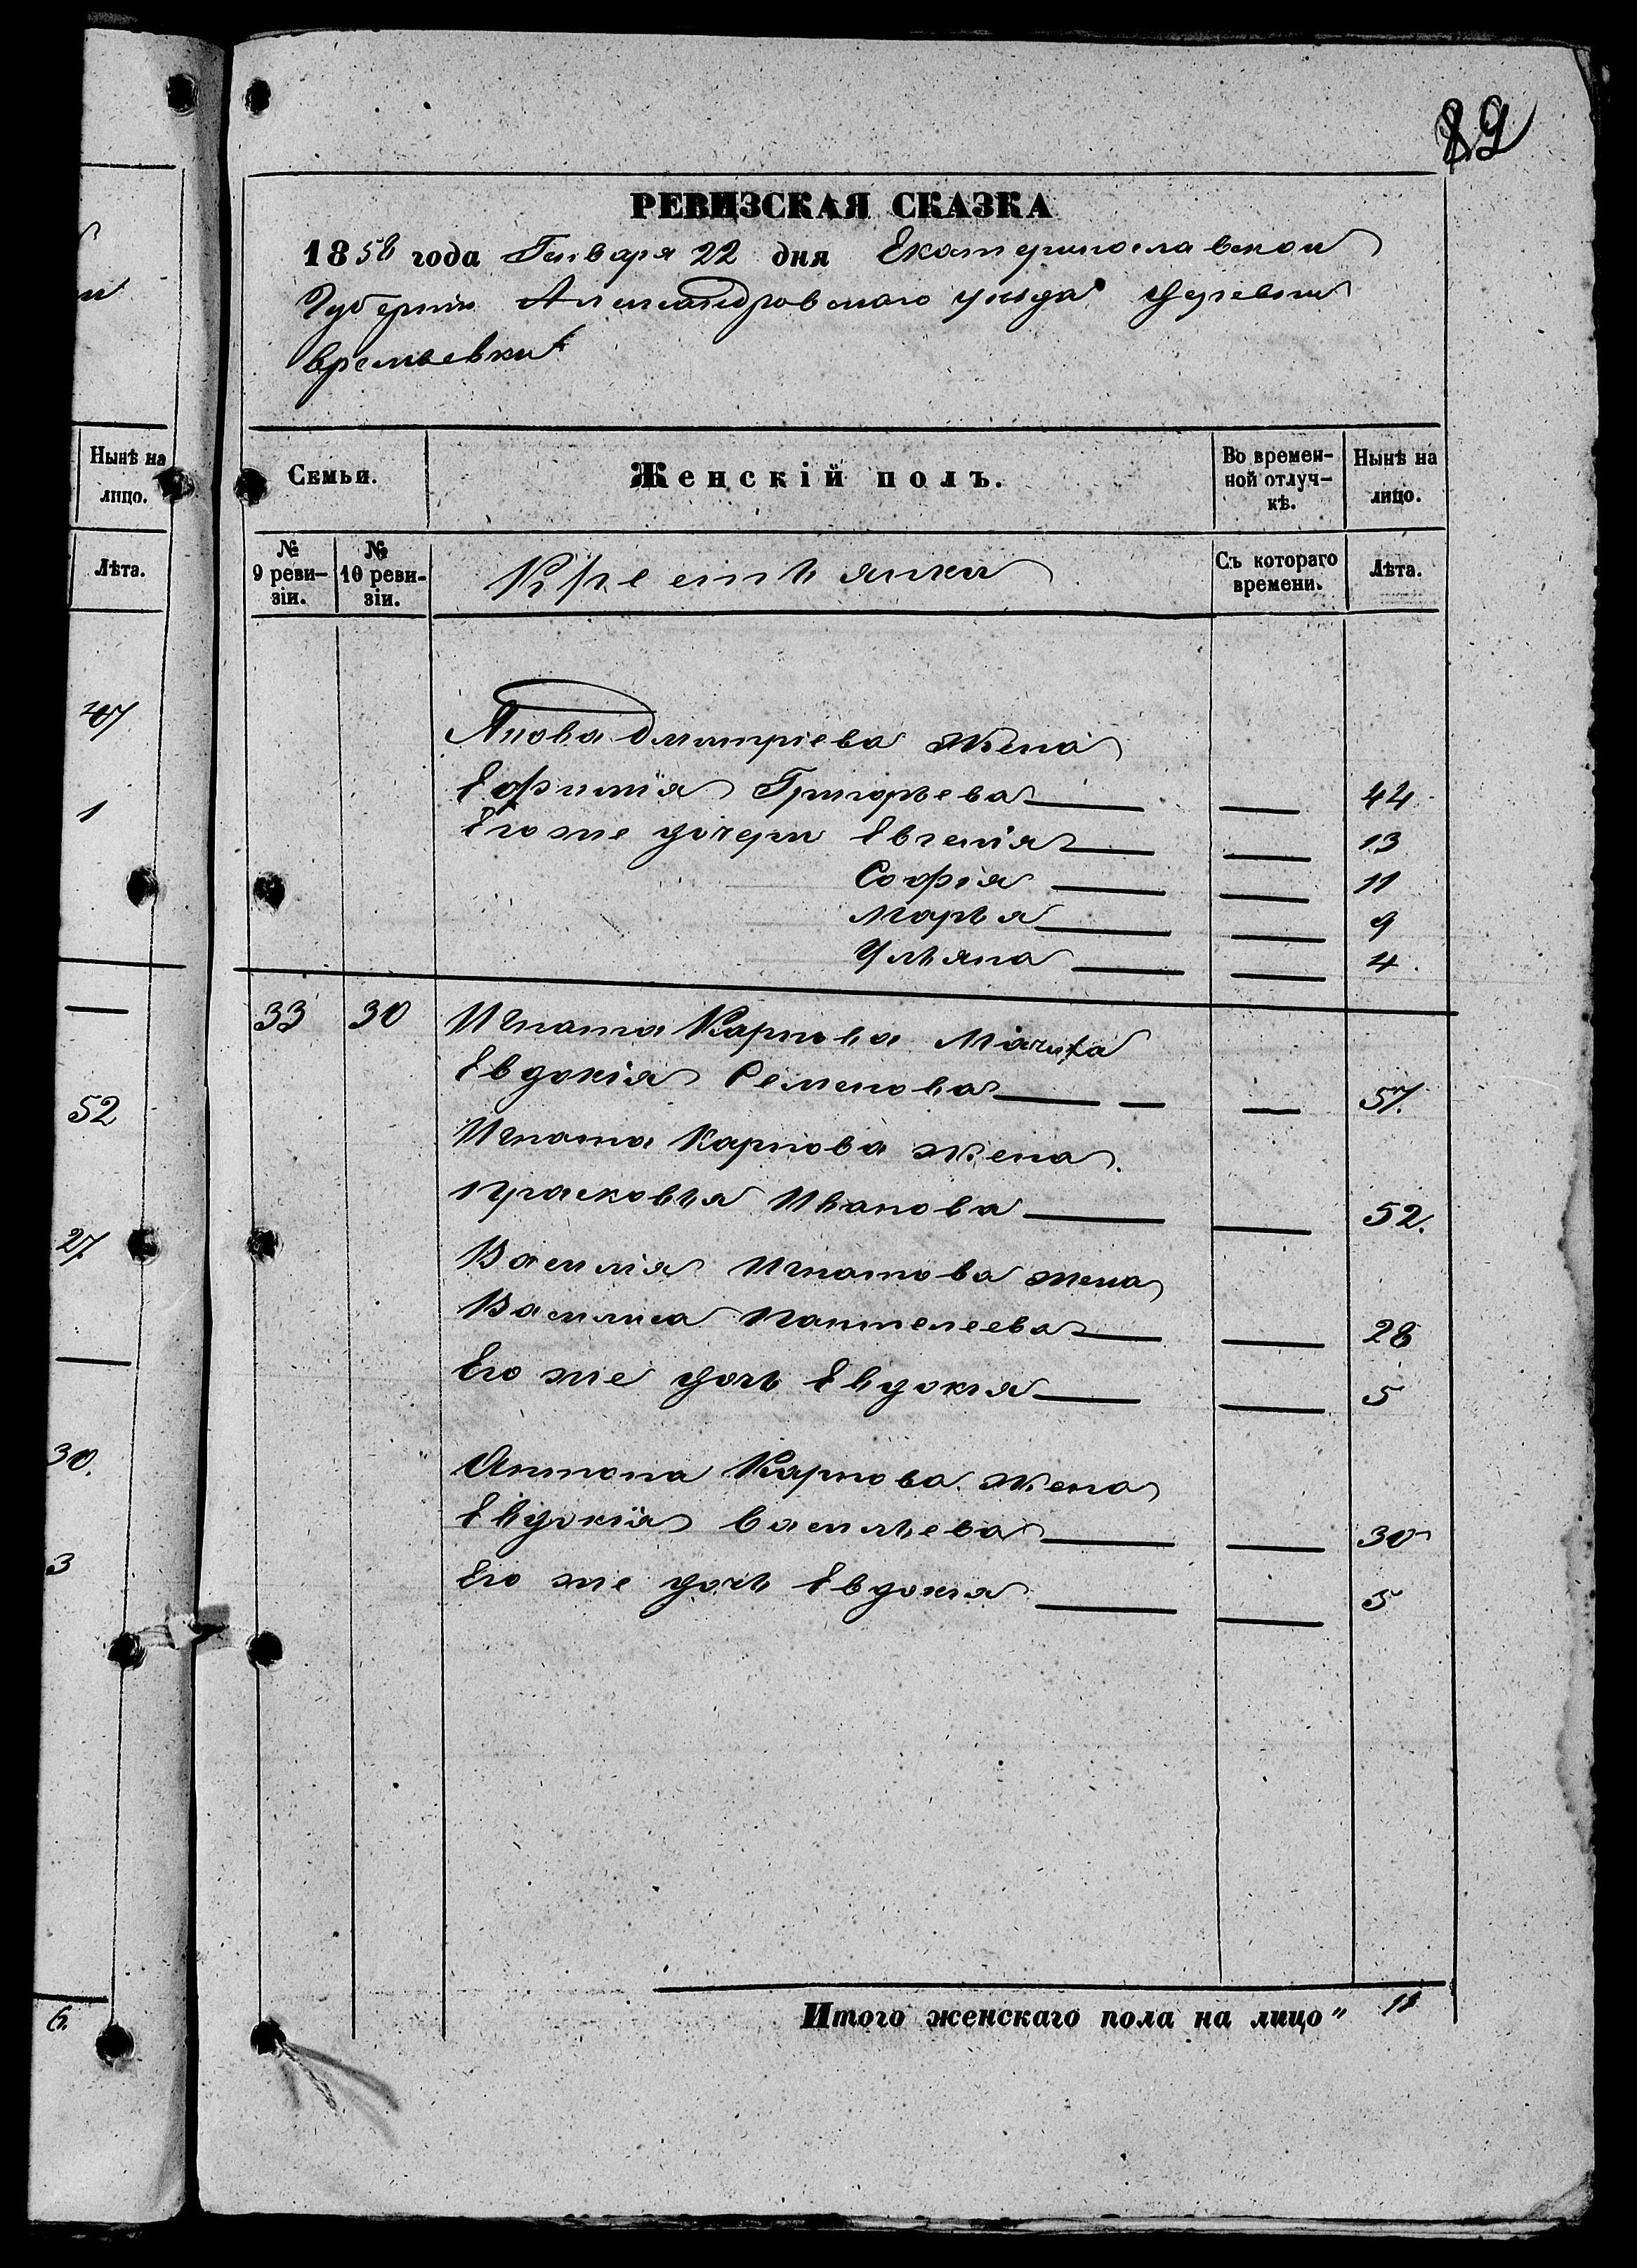 89
РЕВИЗСКАЯ СКАЗКА
1858 года Генваря 22 дня Екатеринославской
Губернии Александровского уезда деревни
Времьевки
Нынѣ на
лицо.
Лѣта.
47
1
52
27
30.
3
6.
Семьи.
Женскій полъ.
Во времен-
ной отлуч-
кѣ.
Нынѣ на
лицо.
№
9 реви-
зіи.
№
10 реви-
зіи.
Съ котораго
времени.
Лѣта.
Дмитріева жена
Ефимія Григорьева 44
Его же дочери Евгенія 13
Софія 11
Марья 9
Ульяна 4
33 30 Игната Карпова Мачиха
Евдокія Семенова 57.
Игната Карпова жена.
Прасковья Иванова 52.
Василія Игнатова жена
Василиса Пантелеева 28
Его же дочь Евдокия 5
Антона Карпова жена
Евдокія Васильева 30
Его же дочь Евдокия 5
Итого женскаго пола на лицо" 11